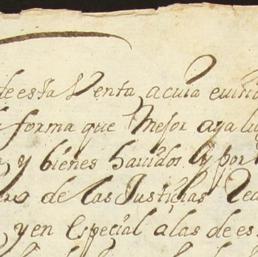 de esta Venta, acuia euicci
forma que Mejor aya lu
y bienes hauidos y por
de las Justicias Rea
y en especial a las de es